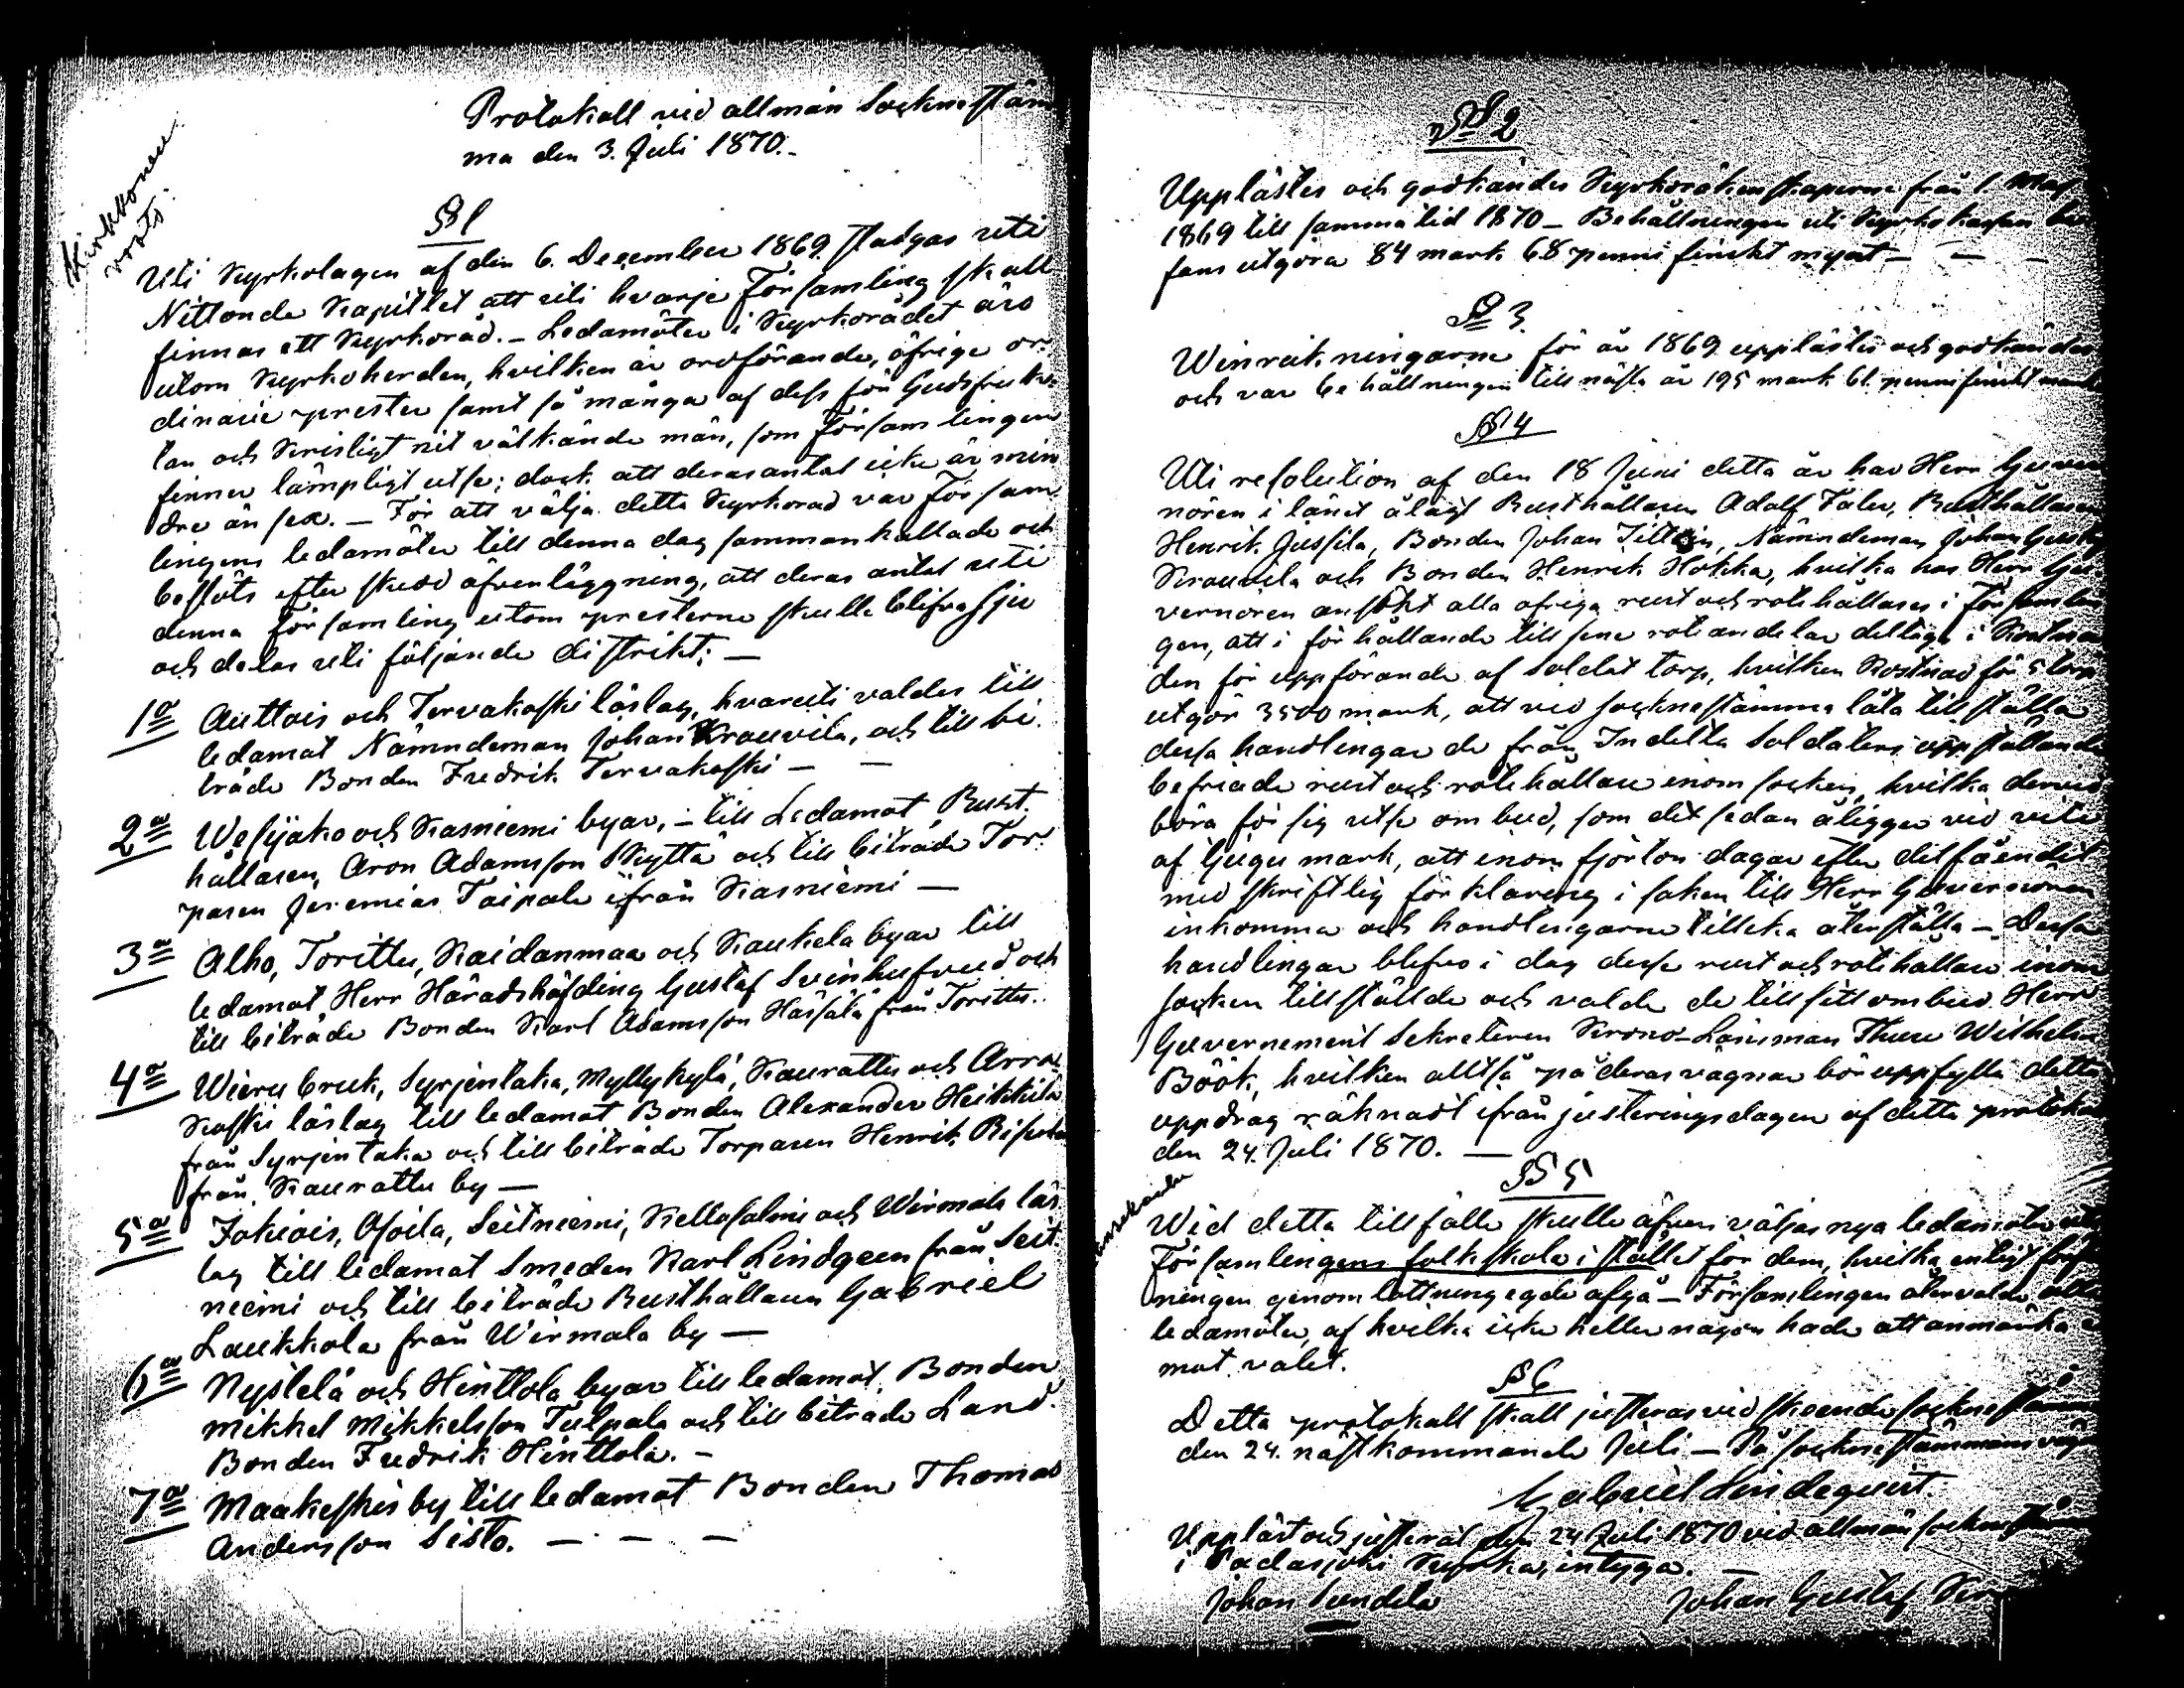 Protokoll vid allmän Socknestäm
ma den 3. Juli 1870.
Kirkkoneu
vosto.
§ 1
Uti Kyrkolagen af den 6. December 1869. stadgas uti
Nittonde Kapitlet att uti hvarje Församling skall
finnas ett Kyrkoråd. – Ledamöter i Kyrkorådet äro
utom Kyrkoherden, hvilken är ordförande, öfrige or
dinarie prester samt så många af dess för Gudsfruk
tan och Kristligt nit välkände män, som Församlingen
finner lämpligt utse; dock att deras antal icke är min
dre än sex. – För att välja detta Kyrkoråd var Försam
lingens ledamöter till denna dag sammankallade och
beslöts efter skedd öfverläggning, att deras antal uti
denna församling utom presterne skulle blifva sju
och delas uti följande distrikt: –
1o Auttois och Tervakoski läslag, hvaruti valdes till
ledamot Nämndeman Johan Krouvila, och till bi
träde Bonden Fredrik Tervakoski – –
2o Wesijako och Kasniemi byar, – till Ledamot Rust
hållaren, Aron Adamsson Skyttä och till biträde Tor
paren Jeremias Taipale ifrån Kasniemi –
3o Alho, Torittu, Kaidanmaa och Kaukela byar till
ledamot Herr Häradshöfding Gustaf Svinhufvud och
till biträde Bonden Karl Adamsson Hässälä från Torittu.
4o Wieru bruk, Syrjentaka, Myllykylä, Kaurattu och Arra
koski läslag till ledamot Bonden Alexander Heikkilä
från Syrjentaka och till biträde Torparen Henrik
från Kaurattu by –
5o Jokiois, Osoila, Seitniemi, Kellosalmi och Wirmala läs
lag till ledamot Smeden Karl Lindgren från Seit
niemi och till biträde Rusthållaren Gabriel
Laukkola från Wirmala by –
6o Nystelä och Hinttola byar till ledamot, Bonden
Mikkel Mikkelsson Tulpala och till biträde Land
Bonden Fredrik Hinttola. –
7o Maakeskis by till ledamot Bonden Thomas
Andersson Sisto. – – –
§ 2
Upplästes och godkändes Kyrkoräkenskaperne från 1. Maj
1869 till samma tid 1870 – Behållningen uti Kyrkokassan be
fans utgöra 84 mark 68 penni finskt mynt – – –
§ 3
Winräkningarne för år 1869 upplästes och godkändes
och var behållningen till nästa år 195 mark 61 penni finskt mynt
§ 4
Uti resolution af den 18 Juni detta år har Herr Guver
nören i länet ålagt Rusthållaren Adolf Täler, Rusthållaren
Henrik Jussila, Bonden Johan Nämndeman Johan Gustaf
Krouvila och Bonden Henrik Hokka, hvilka hos Herr Gu
vernören ansökt alla öfriga rust och rotehållares i Försam lin
gen, att i förhållande till sine roteandelar deltaga i Kostna
den för uppförande af soldat torp, hvilken Kostnad för 5 torp
utgör 3500 mark, att vid socknestämma låta tillställa
dessa handlingar de från Indelta Soldaters uppställande
befriade rust och rotehållare inom socken, hvilka dervid
böra för sig utse ombud, som det sedan åligger vid vite
af tjugu mark, att inom fjorton dagar efter delfåendet
med skriftlig förklaring i saken till Herr Guvernören
inkomma och handlingarne tillika återställa – Dessa
handlingar blefvo i dag desse rust och rotehållare inom
socken tillställde och valde de till sitt ombud Herr
Guvernements Sekreteren Krono-Länsman Thure Wilhelm
Böök, hvilken alltså på deras vägnar bör uppfylla detta
uppdrag räknadt ifrån justeringsdagen af detta protokoll
den 24. Juli 1870. –
§ 5
Wid detta tillfälle skulle äfven väljas nya ledamöter uti
Församlingens folkskola i stället för dem, hvilka enligt
ningen genom lottning egde afgå – Församlingen återvalde alla
ledamöter, af hvilka icke heller någon hade att anmärka
mot valet.
§ 6
Detta protokoll skall justeras vid skeende socknestämma
den 24. nästkommande Juli – På socknestämmans vägnar
Gabriel Lindequist.
Uppläst och justerat den 24 Juli 1870 vid allmän socknestäm
i Padasjoki Kyrka, intyga. –
Johan Sundila Johan Gustaf Kro